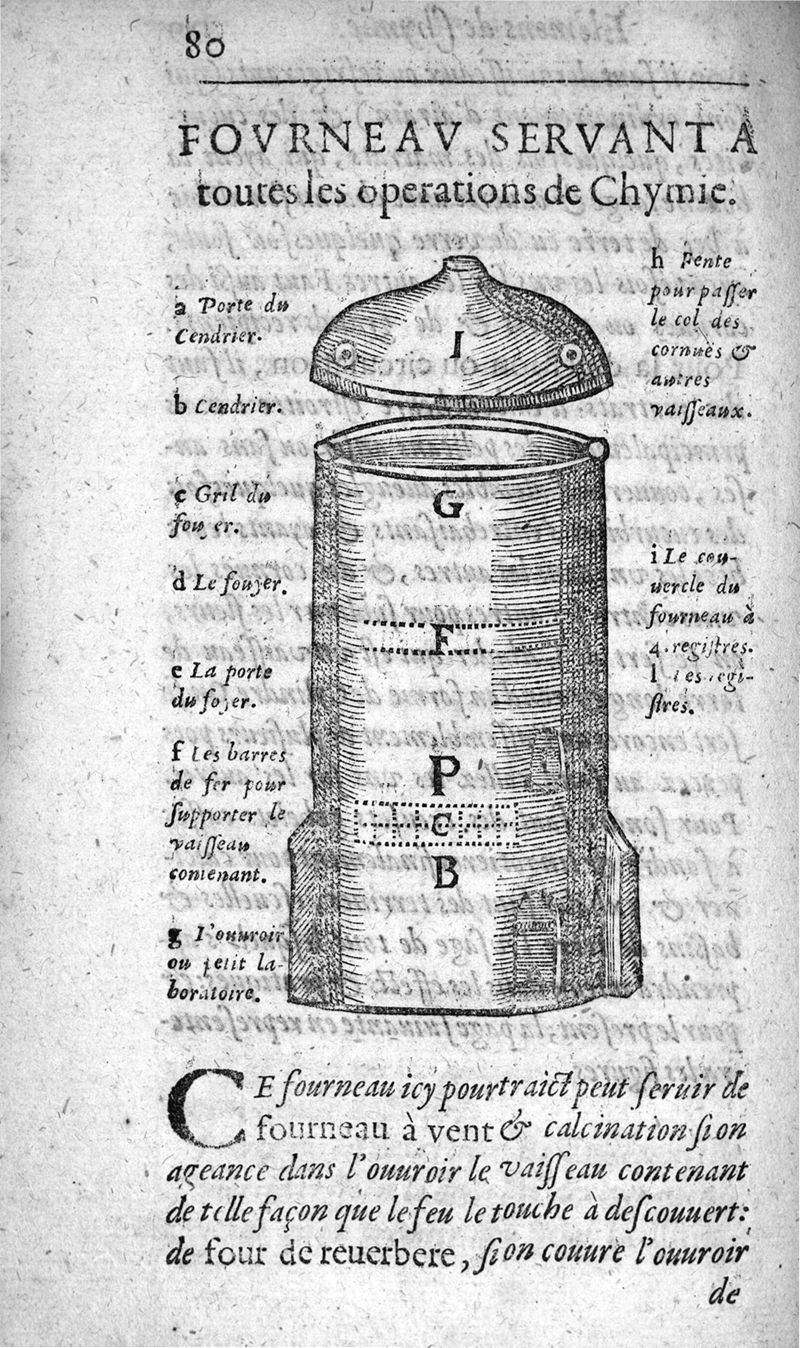 80
FOVRNEAV SERVANT A
toutes les operations de Chymie.
a Porte du
Cendrier.
b Cendrier.
c Gril du
foyer.
d Le fouyer.
e La porte
du foyer.
f Les barres
de fer pour
supporter le
vaisseau
contenant.
g L'ouuroir
ou petit la-
boratoire.
h Fente
pour passer
le col des
cornuës &
autres
vaisseaux.
i Le cou-
uercle du
fourneau à
4. registres.
l Les regi-
stres.
I
G
F
P
C
B
CE fourneau icy pourtraict peut seruir de
fourneau à vent & calcination si on
ageance dans l'ouuroir le vaisseau contenant
de telle façon que le feu le touche à descouuert:
de four de reuerbere, si on couure l'ouuroir
de